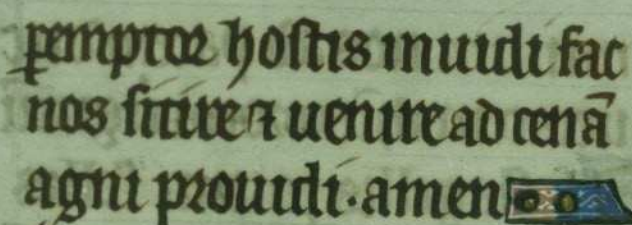 ꝑemptor hostis inuidi fac
nos sitire ⁊ uenire ad cenā
agni prouidi · amen